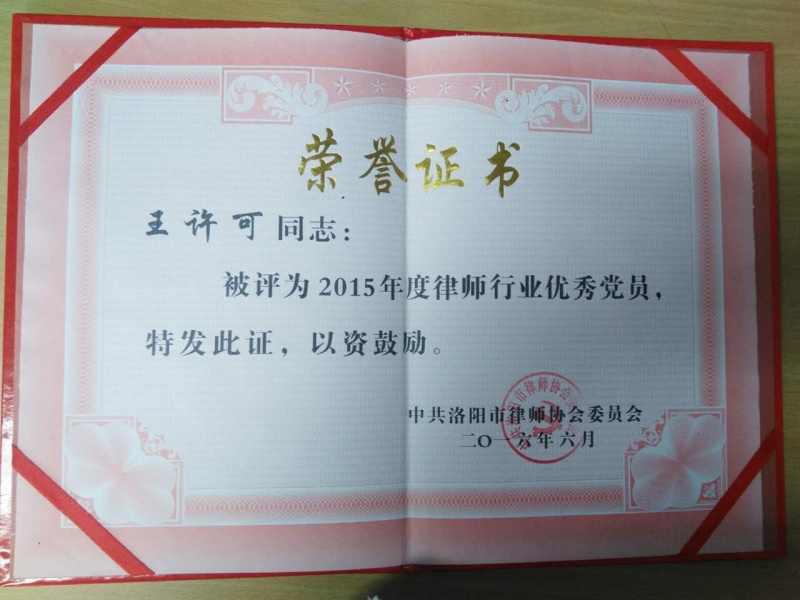 荣誉证书
王许可同志：
被评为2015年度律师行业优秀党员，
特发此证，以资鼓励。
中共洛阳市律师协会委员会
二〇一六年六月